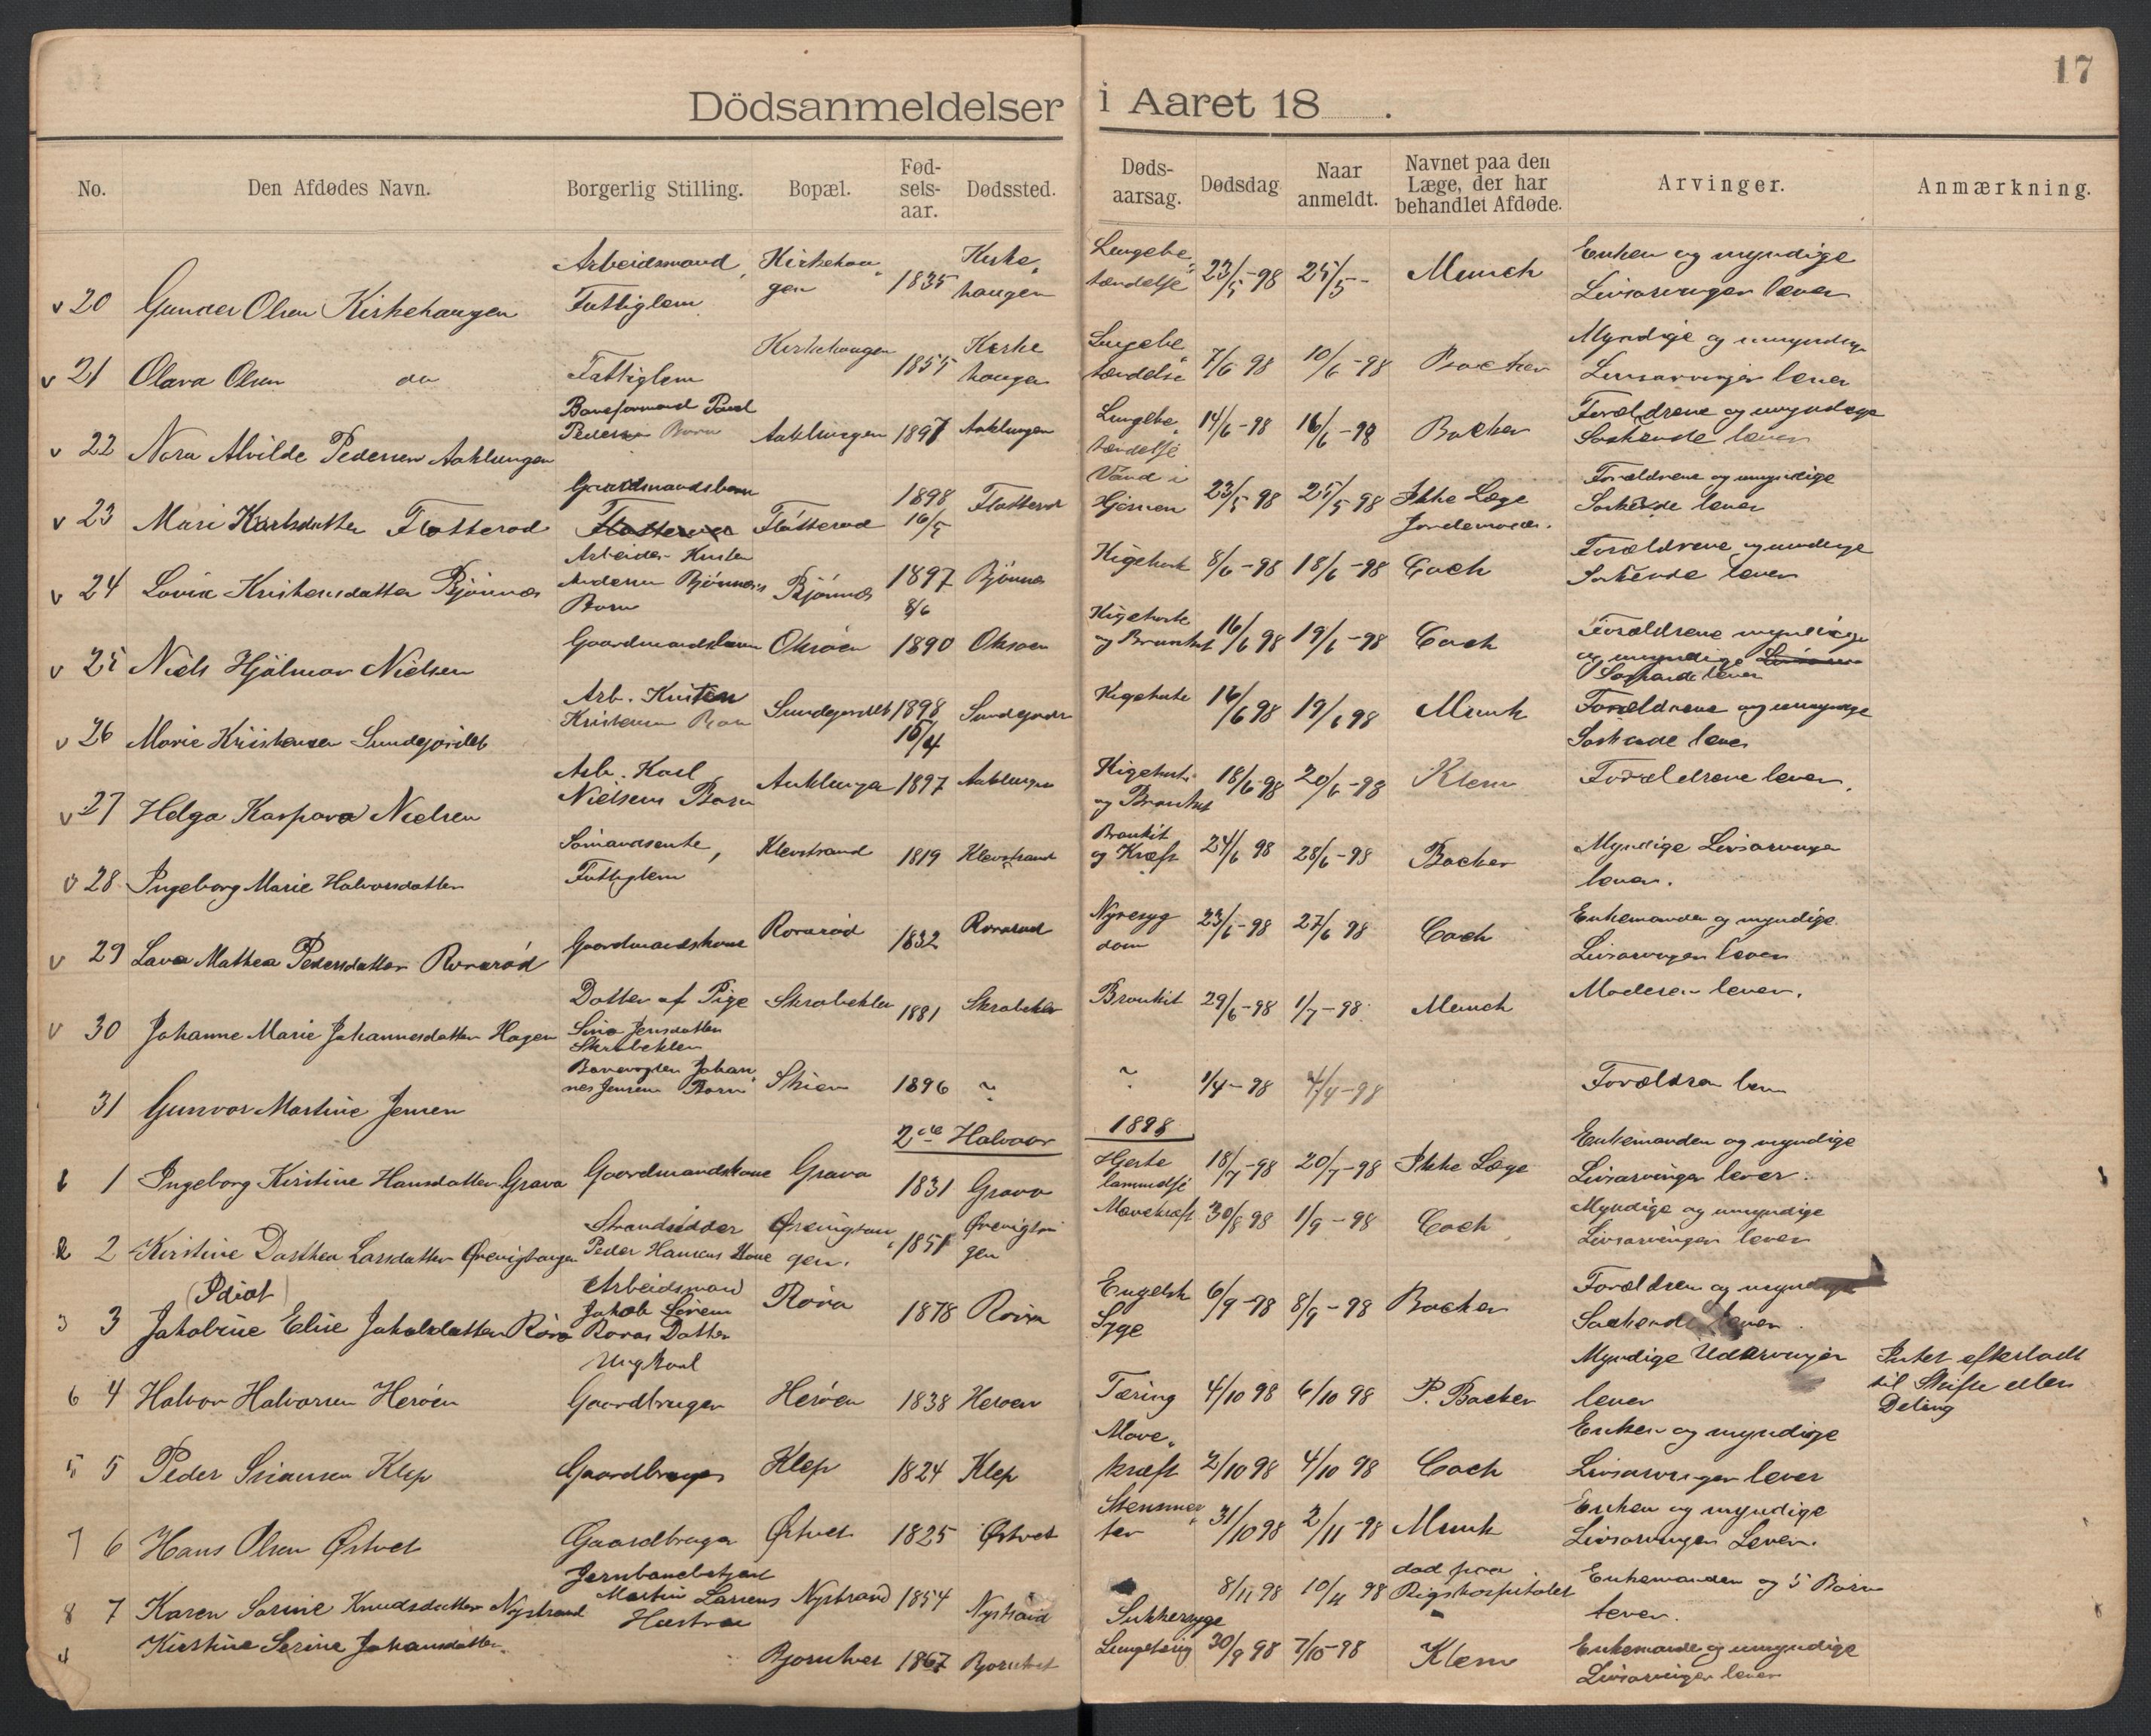 17
Dödsanmeldelser i Aaret 18 .
No. Den Afdødes Navn. Borgerlig Stilling. Bopæl. Fød- sels- aar. Dødssted. Døds- aarsag. Dødsdag Naar anmeldt. Navnet paa den Læge, der har behandlet Afdøde. Arvinger. Anmærkning.
Arbeidsmand, Kirkehau„ Kirke„ Lungebe„ Enken og myndige
v 20 Gunder Olsen Kirkehaugen Fattiglem gen 1835 haugen tændelse 23/5-98 25/5- Munch Livsarvinger lever
Kirkehaugen Kirke Lungebe„ Myndige og umyndige
v 21 Olava Olsen do Fattiglem 1855 haugen tændelse 7/6 98 10/6-98 Backer Livsarvinger lever
Baneformand Paul Lungebe„ Forældrene og umyndige
v 22 Nora Alvilde Pedersen Aaklungen Pedersen Barn Aaklungen 1897 Aaklungen tændelse 14/6-98 16/6-98 Backer Søskende lever
Gaardmandsbarn 1898 Vand i Forældrene og umyndige
v 23 Mari Karlsdatter Flotterød Flotterød 16/5 Flotterød Hjernen 23/5 98 25/5 98 Ikke Læge Søskende lever
Jordemoder.
Arbeider Kristen Forældrene og myndige
v 24 Lovise Kristensdatter Bjönnes Andersen Bjönnes's Bjönnes 1897 Bjönnes Kigehoste 8/6-98 18/6-98 Coch Søskende lever
Barn 8/6
v 25 Niels Hjalmar Nielsen Gaardmandsbarn Oksøen 1890 Oksøen Kigehoste og Bronkit 16/6 98 19/6-98 Coch Forældrene myndige
og umyndige
Søskende lever
Arb. Kristen
v 26 Marie Kristensen Sundejordet Kristensen Barn Sundejordet 1898 Sundejordet Kigehoste 16/6 98 19/6 98 Munk Forældrene og umyndige
16/4 Søskende lever
Arb. Karl Kigehoste
v 27 Helga Kaspara Nielsen Nielsens Barn Aaklungen 1897 Aaklungen og Bronkit 18/6-98 20/6-98 Klem Forældrene lever.
Sømandsenke, Bronkit Myndige Livsarvinger
v 28 Ingeborg Marie Halvorsdatter Fattiglem Klevstrand 1819 Klevstrand og Kræft 24/6 98 28/6-98 Backer lever.
Nyresyg Enkemanden og myndige
v 29 Lava Mathea Pedersdatter Rørarød Gaardmandskone Rorarød 1832 Rorarød dom 23/6-98 27/6 98 Coch Livsarvinger lever
Datter af Pige
v 30 Johanne Marie Johannesdatter Hagen Sina Jensdatter Skrabeklev 1881 Skrabeklev Bronkit 29/6-98 1/7-98 Munch Moderen lever.
Skrabeklev
Banevogter Johan„
31 Gunvor Martine Jensen nes Jensens Barn Skien 1896 ~ ~ 1/4-98 4/4-98 Forældren lever
2de Halvaar 1898
Hjerte Enkemanden og myndige
1 1 Ingeborg Kirstine Hansdatter Grava Gaardmandskone Grava 1831 Grava lammelse 18/7-98 20/7-98 Ikke Læge Livsarvinger lever.
Strandsidder Ørevigtan„ Ørevigtan Myndige og umyndige
2 2 Kirstine Dorthea Larsdatter Ørevigtangen Peder Hansens Kone gen. 1851 gen Mavekræft 30/8 98 1/9-98 Coch Livsarvinger lever
(Idiot) Arbeidsmand Engelsk Forældren og
3 3 Jakobine Elise Jakobsdatter Röra Jakob Sörens Röra 1878 Röra Syge 6/9-98 8/9-98 Backer Søskende lever.
Roras Datter
Ungkarl Myndige Udarvinger Intet efterladt
6 4 Halvor Halvorsen Herøen Gaardbruger Herøen 1838 Herøen Tæring 4/10 98 6/10 98 P. Backer lever til Skifte eller
Deling
Mave„ Enken og myndige
5 5 Peder Klep Gaardbruger Klep 1824 Klep kræft 2/10 98 4/10 98 Coch Livsarvinger lever
Stensmer„ Enken og myndige
7 6 Hans Olsen Østvet Gaardbruger Østvet 1825 Østvet ter 31/10 98 2/11-98 Munk Livsarvinger Lever.
Jernbanebetjent død paa
8 7 Karen Sorine Knudsdatter Nystrand Martin Larsens Nystrand 1854 Nystrand Sukkersyge 8/11 98 10/11 98 Rigshospitalet Enkemanden og 5 Børn
Hustru lever.
4 Kirstine Serine Johansdatter Bjørntvet 1867 Bjørntvet Lungetæring 30/9 98 7/10-98 Klem Enkemand og umyndige
Livsarvinger lever